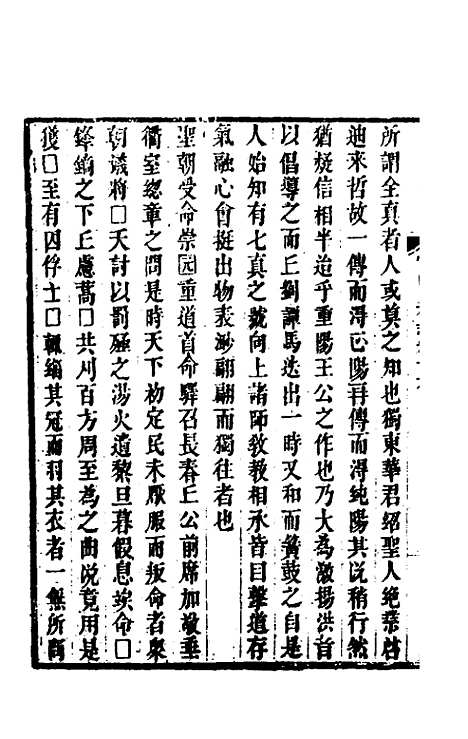 所謂全真者人或莫之知也獨東華君紹聖人絕業啓
迪來哲故一傳而得正陽再傳而得純陽其說稍行然
猶疑信相半迨乎重陽王公之作也乃大為激揚洪首
以倡導之而丘劉譚馬迭出一時又和而簧鼓之自是
人始知有七真之號向上諸師敎敎相承皆目擊道存
氣融心會挺出物表渺翩翩而獨往者也
聖朝受命崇元重道首命驛召長春丘公前席加敬垂
衢室總章之問是時天下初定民未厭服而叛命者衆
朝議將□天討以罰殛之湯火遺黎旦暮假息竢命□
鋒鏑之下丘慮蒿□共刈百方周至為之曲說竟用是
獲□至有囚俘士□輒編其冠而羽其衣者一無所問